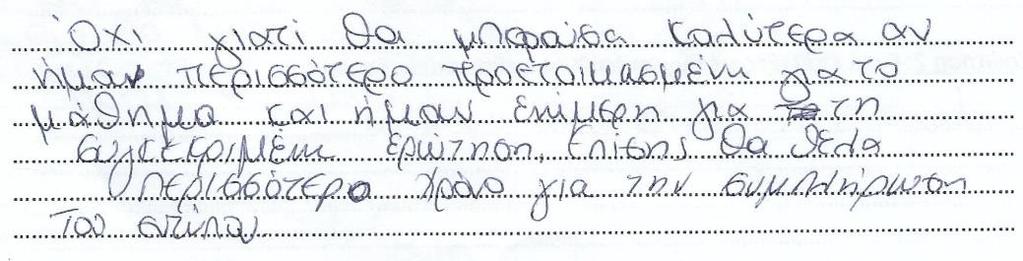 Όχι γιατί θα μπορούσα καλύτερα αν
ήμαν περισσότερο προετοιμασμένη για το
μάθημα και ήμαν ενήμερη για τη
συγκεκριμένη ερώτηση. Επίσης θα ήθελα
περισσότερο χρόνο για την συμπλήρωση
του εντύπου